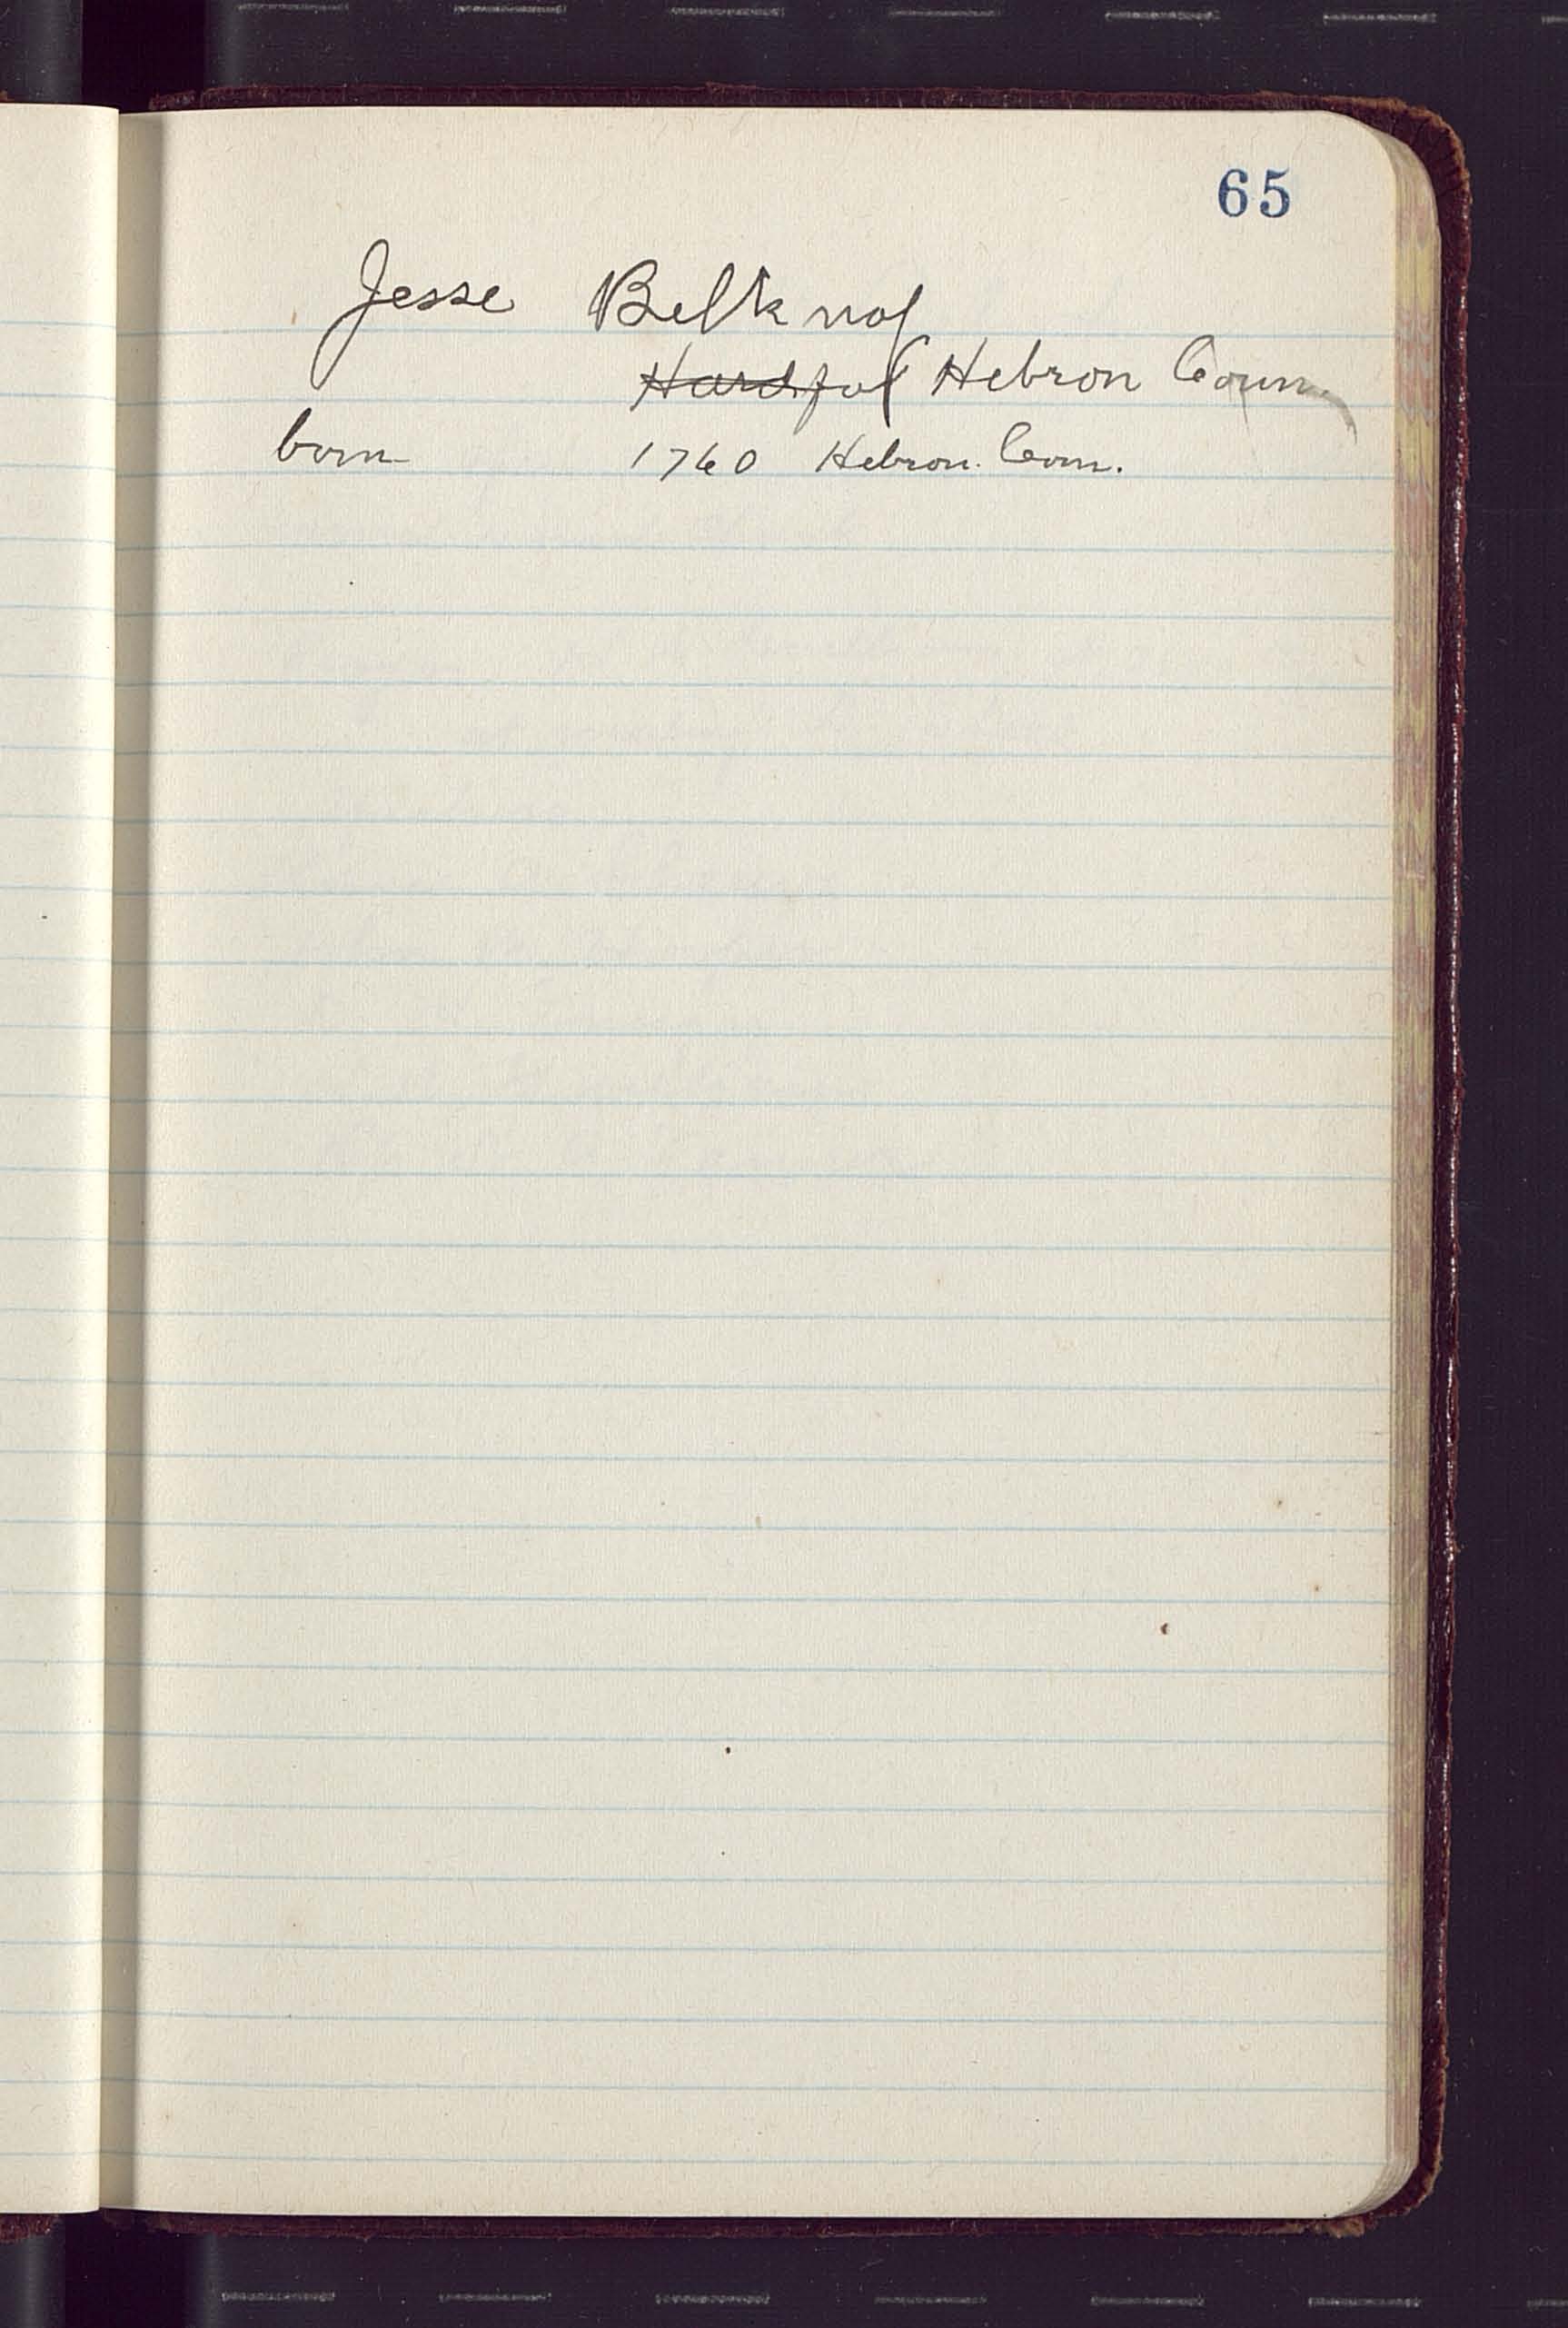 65
Jesse Belknap
Hardfor Hebron Conn.
born 1760 Hebron. Conn.